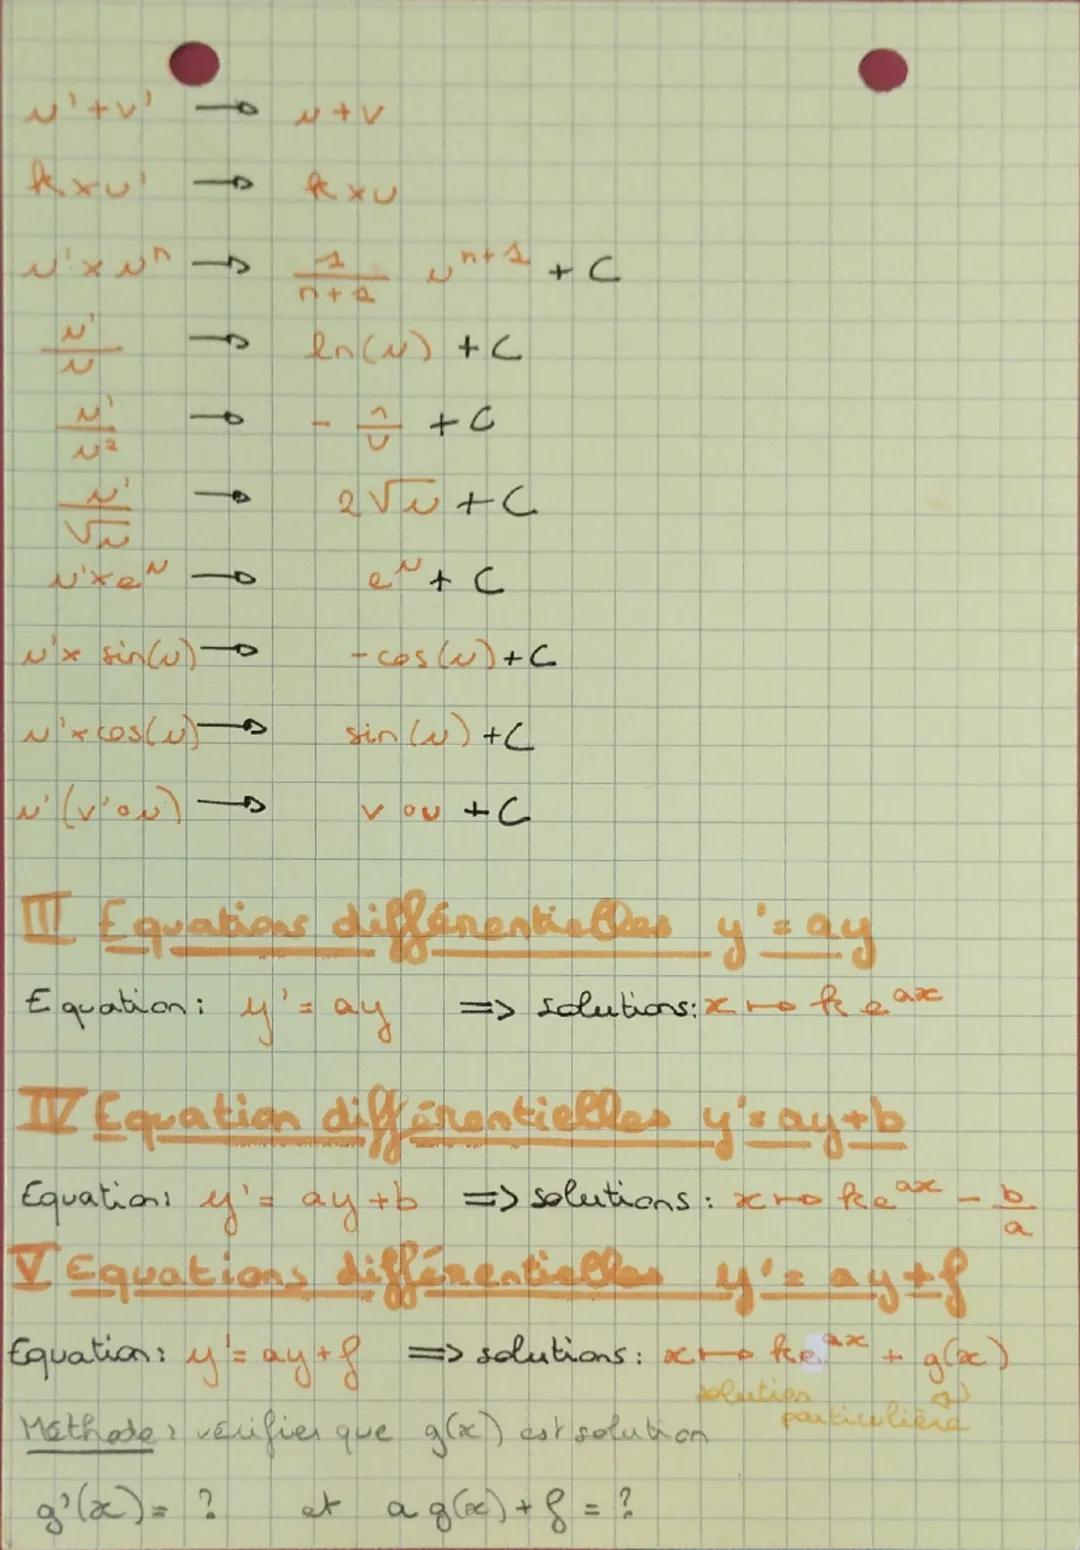 u'+v' → u+v
k×u' → k×u
u'×uⁿ → 1/(n+1) uⁿ⁺¹ + C
u'/u → ln(u) + C
u'/u² → - 1/u + C
u'/√u → 2√u + C
u'×eᵘ → eᵘ + C
u'× sin(u) → -cos(u)+C
u'×cos(u) → sin(u) +C
u'(v'ou) → v ou +C
III Equations différentielles y'=ay
Equation: y'= ay => solutions: x ↦ k eᵃˣ
IV Equation différentielles y'=ay+b
Equation: y'= ay+b => solutions : x ↦ keᵃˣ - b/a
V Equations différentielles y'= ay+f
Equation: y'= ay+f => solutions : x ↦ keᵃˣ + g(x)
solution particulière
Méthode : vérifier que g(x) est solution
g'(x)= ? et a g(x) + f = ?